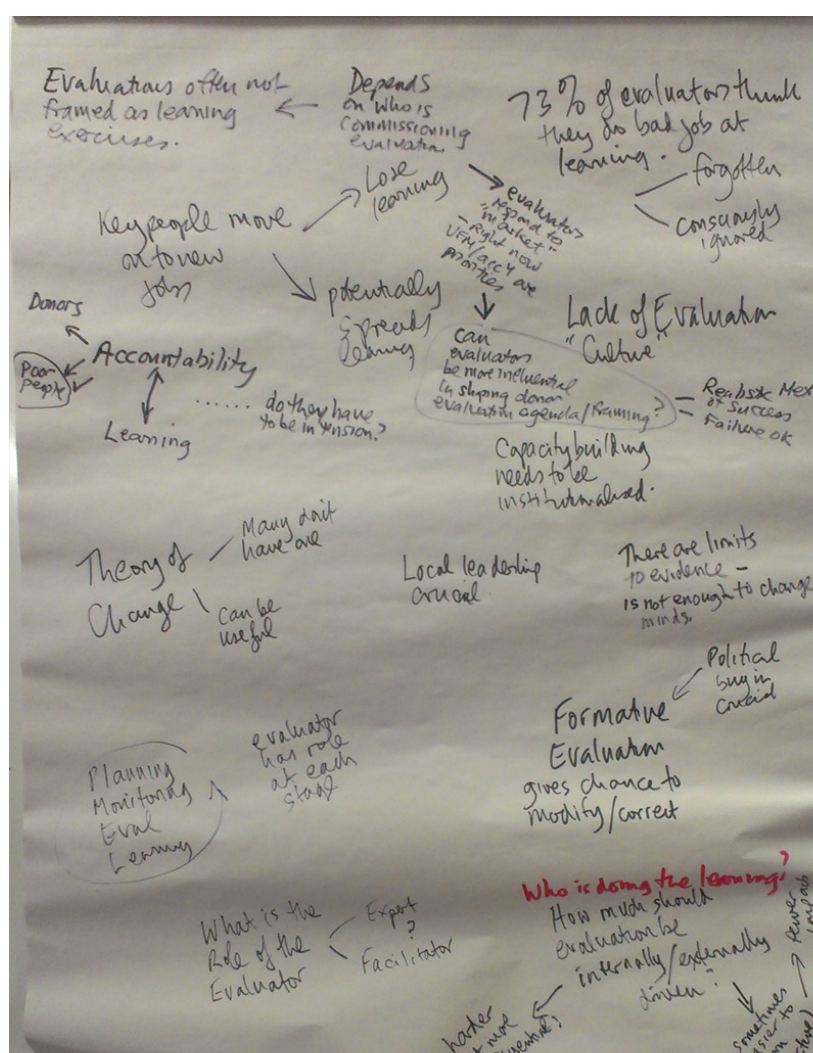 Evaluations often not
framed as learning
exercises.
Depends
on who is
commissioning
evaluation
73% of evaluators think
they do bad job at
learning.
forgotten
consciously
ignored
Key people move
on to new
jobs
Lose
learning
potentially
spreads
learning
evaluators
respond to
"market"
- Right now
VFM/acc'y are
priorities
can
evaluators
be more influential
in shaping donor
evaluation agenda/framing?
Lack of Evaluation
"Culture"
Realistic
of success
Failure ok
Donors
Poor
people
Accountability
Learning
...... do they have
to be in tension?
Capacity building
needs to be
institutionalised.
Theory of
Change
Many don't
have one
can be
useful
Local leadership
crucial
There are limits
to evidence -
is not enough to change
minds.
Political
buy in
crucial
Formative
Evaluation
gives chance to
modify/correct
Planning
Monitoring
Eval
Learning
evaluator
has role
at each
stage
What is the
Role of the
Evaluator
Expert
?
Facilitator
Who is doing the learning?
How much should
evaluation be
internally/externally
driven?
harder
more
sometimes
easier to
fewer